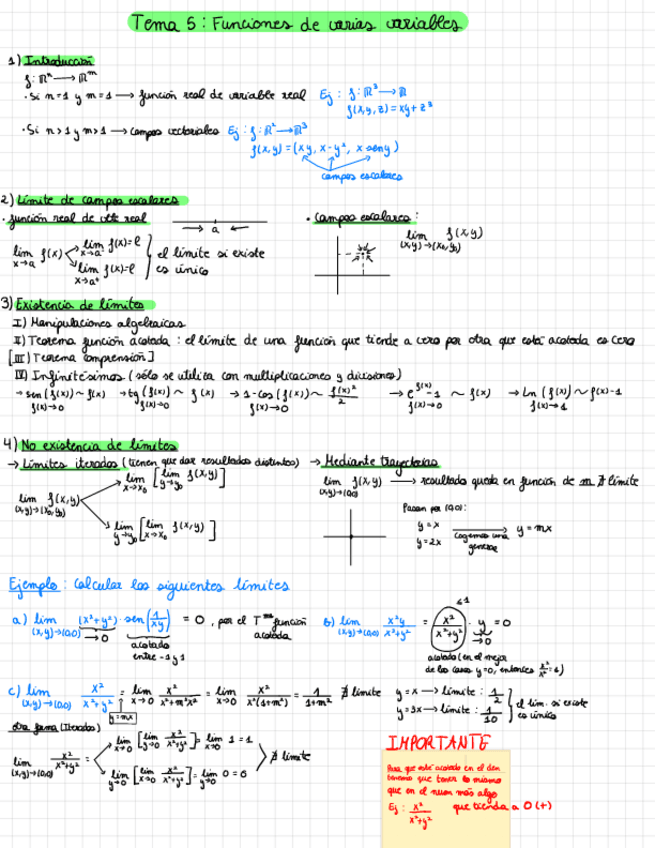 Tema 5: Funciones de varias variables
1) Introducción
f: ℝⁿ → ℝᵐ
· Si n=1 y m=1 → función real de variable real Ej: f: ℝ³ → ℝ
f(x,y,z) = xy + z³
· Si n>1 y m>1 → campos vectoriales Ej: f: ℝ² → ℝ³
f(x,y) = (xy, x-y², x seny)
campos escalares
2) Límite de campos escalares
· función real de vble real
→ a ←
· Campos escalares:
lim x→a f(x) < lim x→a⁻ f(x)=l
lim x→a⁺ f(x)=l } el límite si existe es único
lim (x,y)→(x₀,y₀) f(x,y)
3) Existencia de límites
I) Manipulaciones algebraicas
II) Teorema función acotada: el límite de una función que tiende a cero por otra que está acotada es cero
[III) Teorema compresión]
IV) Infinitésimos (sólo se utiliza con multiplicaciones y divisiones)
→ sen(f(x)) ~ f(x) → tg(f(x)) ~ f(x) → 1-cos(f(x)) ~ f(x)²/2 → e^f(x) - 1 ~ f(x) → Ln(f(x)) ~ f(x)-1
f(x)→0 f(x)→0 f(x)→0 f(x)→0 f(x)→1
4) No existencia de límites
→ Límites iterados (tienen que dar resultados distintos) → Mediante trayectorias
lim (x,y)→(x₀,y₀) f(x,y)
lim x→x₀ [lim y→y₀ f(x,y)]
lim y→y₀ [lim x→x₀ f(x,y)]
lim (x,y)→(0,0) f(x,y) → resultado queda en función de m ∄ límite
Pasan por (0,0):
y=x
y=2x
Cogemos una general
y=mx
Ejemplo: Calcular los siguientes límites
a) lim (x,y)→(0,0) (x²+y²) · sen(1/xy) = 0, por el Tᵐᵃ función acotada
→0
acotado entre -1 y 1
b) lim (x,y)→(0,0) x²y/x²+y² = x²/x²+y² · y = 0
≤1
→0
acotado (en el mejor
de los casos y=0, entonces x²/x²=1)
c) lim (x,y)→(0,0) x²/x²+y² = lim x→0 x²/x²+m²x² = lim x→0 x²/x²(1+m²) = 1/1+m² ∄ límite
y=mx
y=x → límite: 1/2
y=3x → límite: 1/10 } el lim. si existe es único
Otra forma (Iterados)
lim (x,y)→(0,0) x²/x²+y² =
lim x→0 [lim y→0 x²/x²+y²] = lim x→0 1 = 1
lim y→0 [lim x→0 x²/x²+y²] = lim y→0 0 = 0
∄ límite
IMPORTANTE
Para que esté acotado en el den
tenemos que tener lo mismo
que en el num más algo
que tienda a 0 (+)
Ej: x²/x²+y²